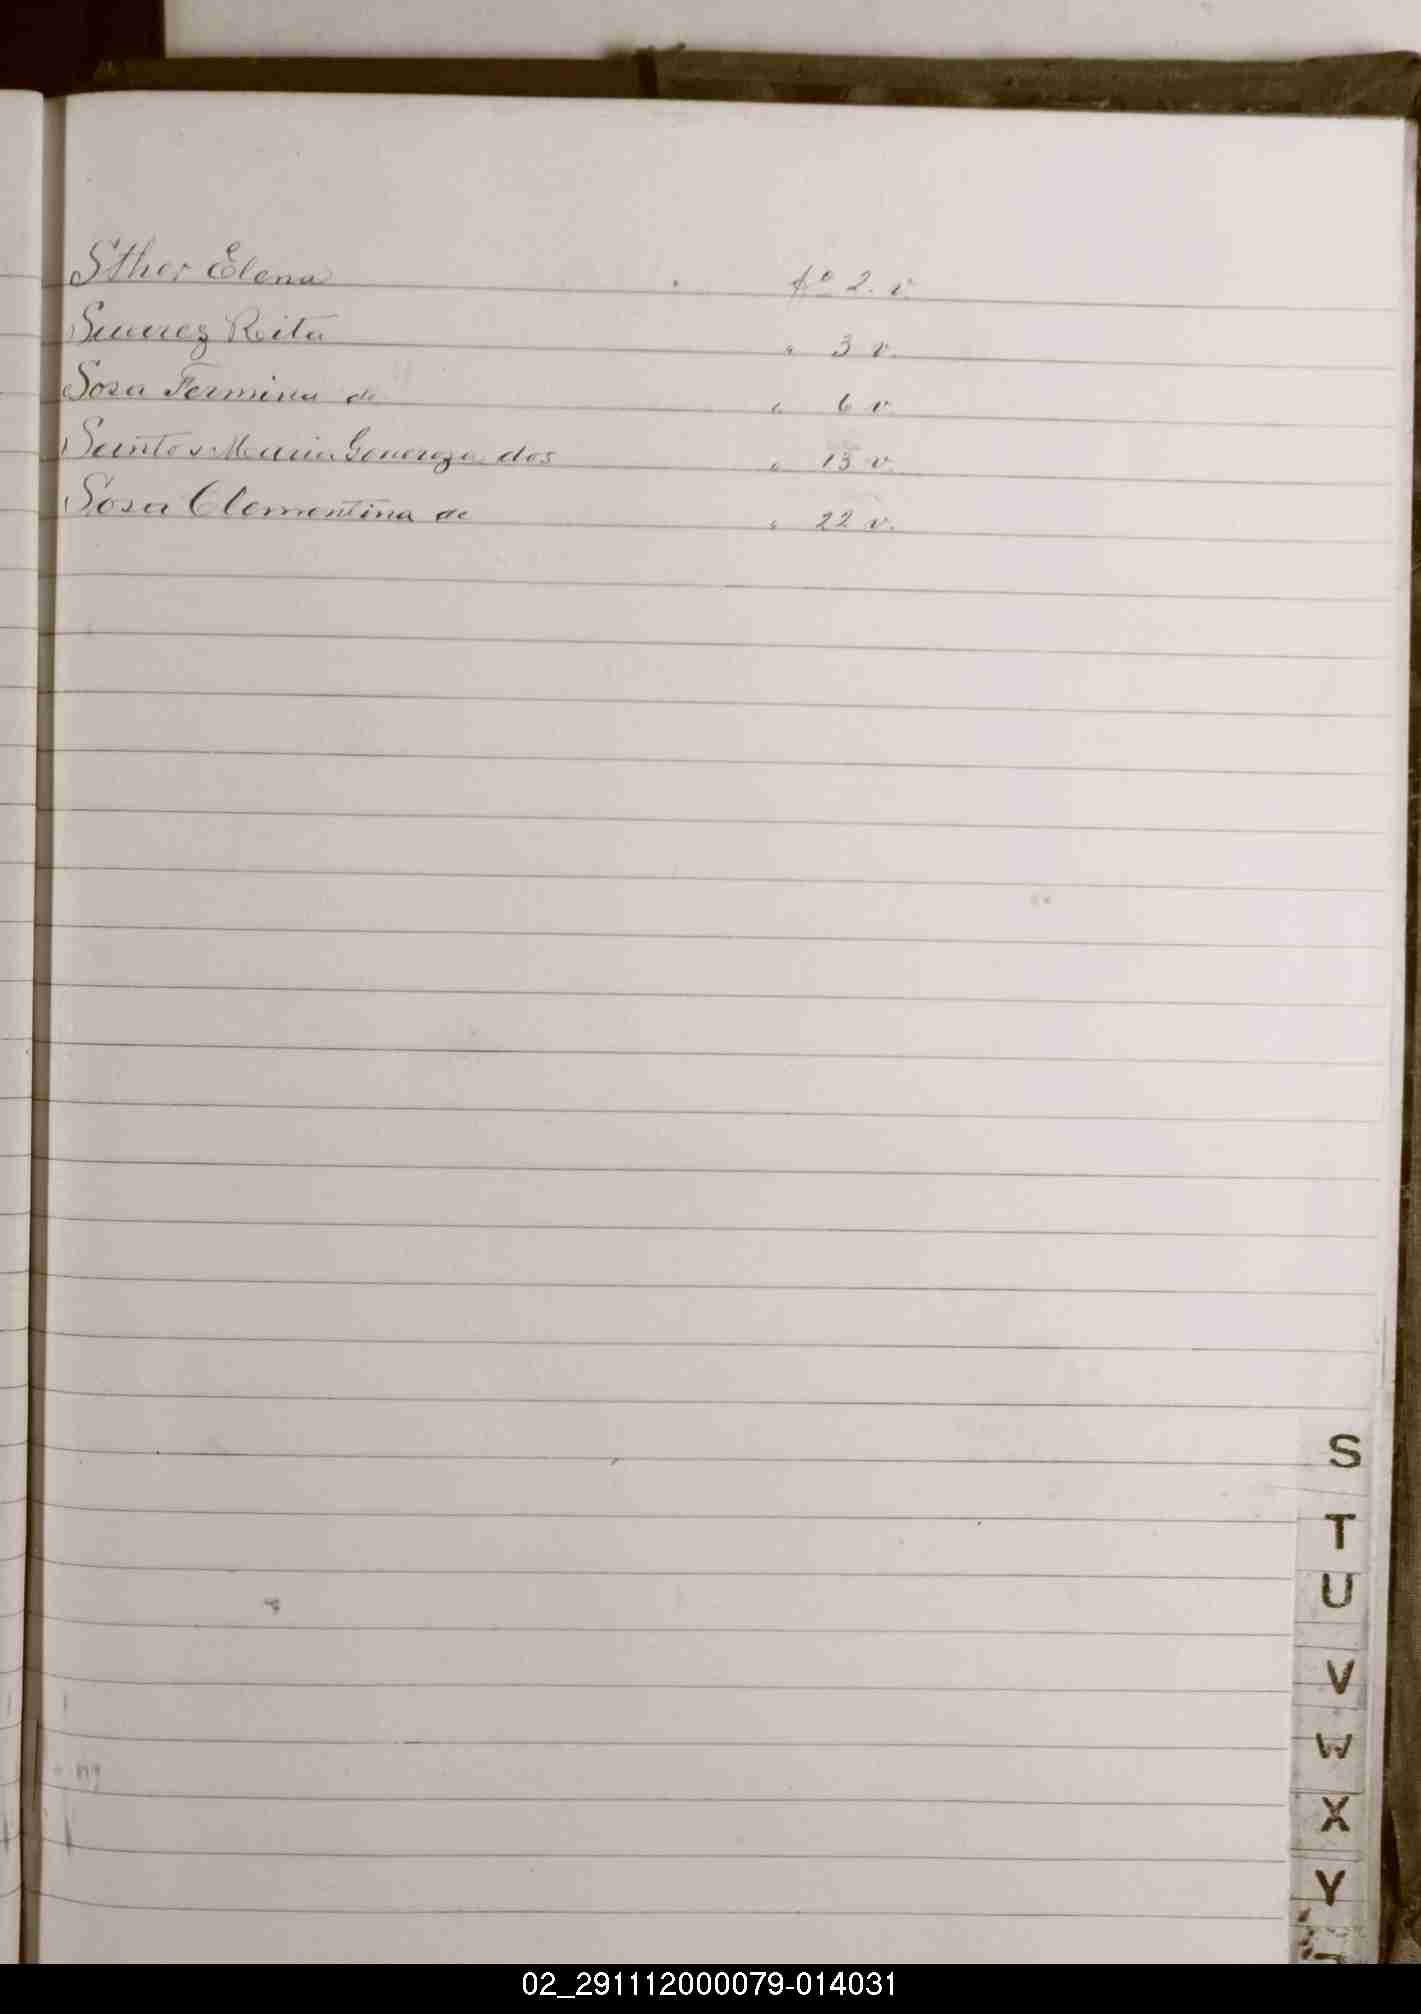 Sther Elena fº 2. v.
Suarez Rita " 3 v.
Sosa Fermina de " 6 v.
Santos Maria Generoza dos " 13 v.
Sosa Clementina de " 22 v.
S
T
U
V
W
X
Y
02_291112000079-014031